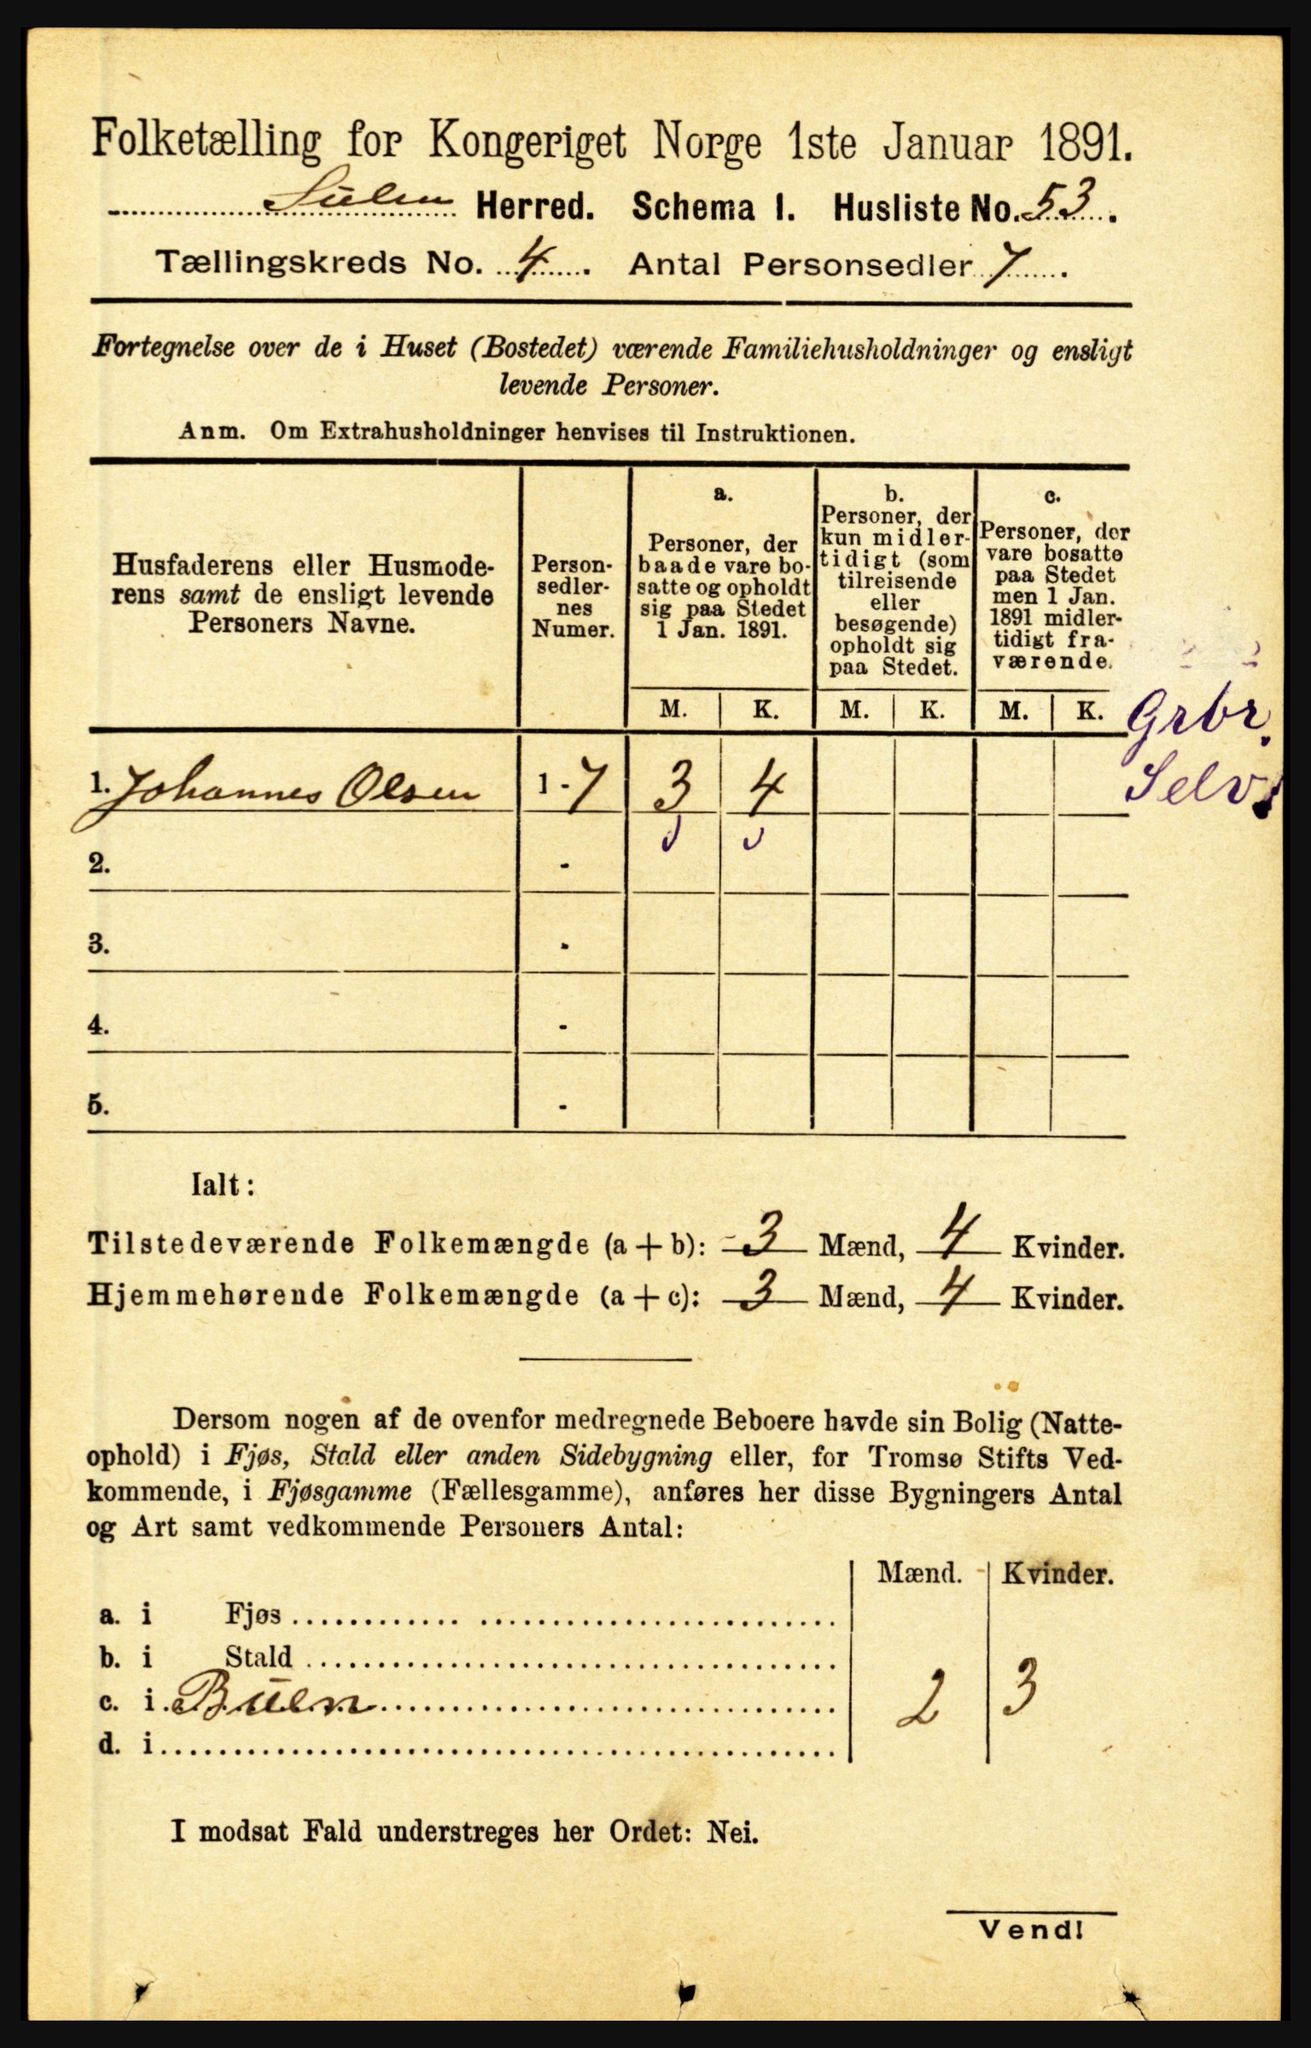 Folketælling for Kongeriget Norge 1ste Januar 1891.
Sulen Herred. Schema 1. Husliste No. 53.
Tællingskreds No. 4. Antal Personsedler 7.
Fortegnelse over de i Huset (Bostedet) værende Familiehusholdninger og ensligt
levende Personer.
Anm. Om Extrahusholdninger henvises til Instruktionen.
Husfaderens eller Husmode-
rens samt de ensligt levende
Personers Navne.
Person-
sedler-
nes
Numer.
a.
Personer, der
baade vare bo-
satte og opholdt
sig paa Stedet
1 Jan. 1891.
b.
Personer, der
kun midler-
tidigt (som
tilreisende
eller
besøgende)
opholdt sig
paa Stedet.
c.
Personer, der
vare bosatte
paa Stedet
men 1 Jan.
1891 midler-
tidigt fra-
værende.
M. K. M. K. M. K.
Grbr.
Selv.
1. Johannes Olsen 1 - 7 3 4
2. -
3. -
4. -
5. -
Ialt:
Tilstedeværende Folkemængde (a + b): 3 Mænd, 4 Kvinder.
Hjemmehørende Folkemængde (a + c): 3 Mænd, 4 Kvinder.
Dersom nogen af de ovenfor medregnede Beboere havde sin Bolig (Natte-
ophold) i Fjøs, Stald eller anden Sidebygning eller, for Tromsø Stifts Ved-
kommende, i Fjøsgamme (Fællesgamme), anføres her disse Bygningers Antal
og Art samt vedkommende Personers Antal:
Mænd. Kvinder.
a. i Fjøs
b. i Stald
c. i Buen 2 3
d. i
I modsat Fald understreges her Ordet: Nei.
Vend!